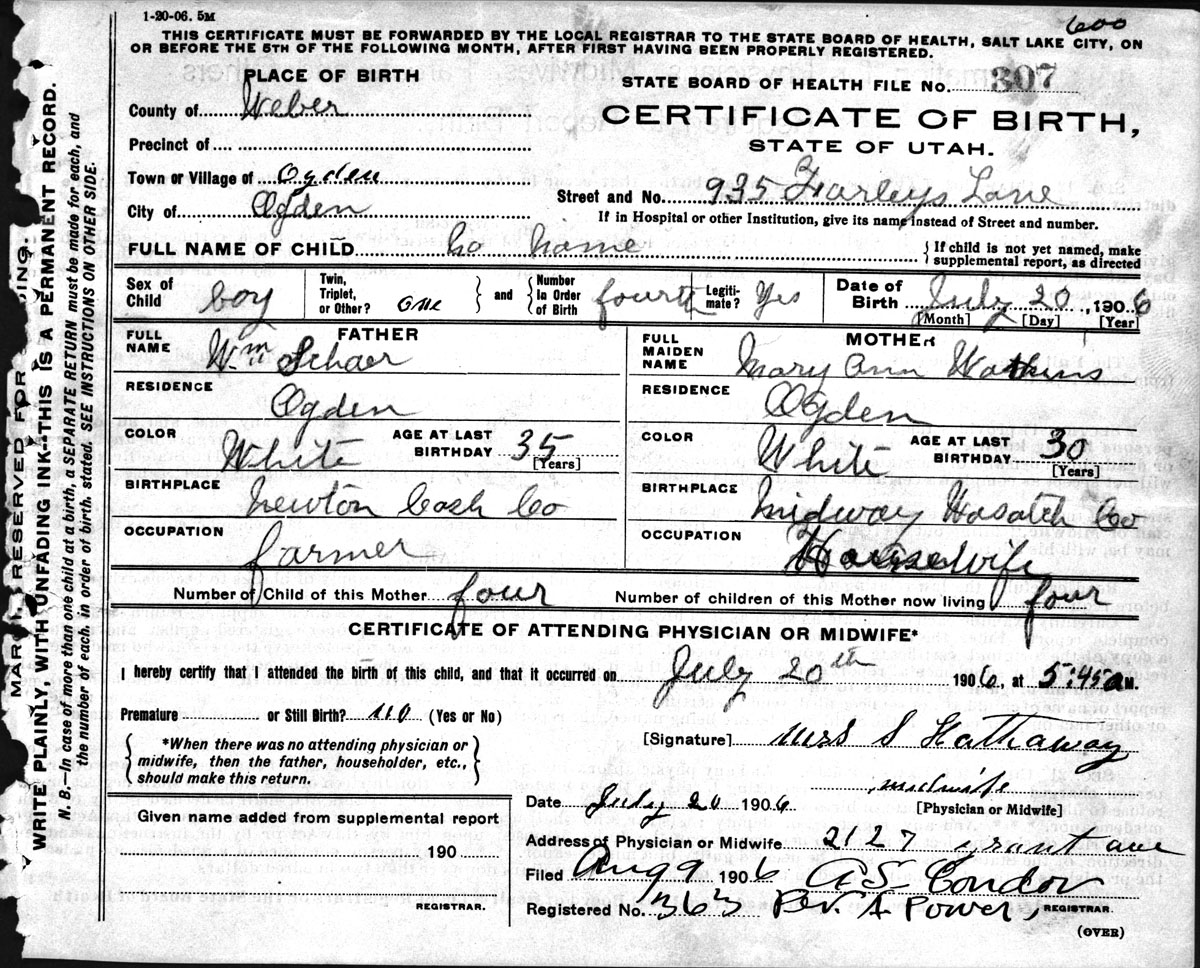 1-20-06. 5M
600
THIS CERTIFICATE MUST BE FORWARDED BY THE LOCAL REGISTRAR TO THE STATE BOARD OF HEALTH, SALT LAKE CITY, ON
OR BEFORE THE 5TH OF THE FOLLOWING MONTH, AFTER FIRST HAVING BEEN PROPERLY REGISTERED.
PLACE OF BIRTH
STATE BOARD OF HEALTH FILE NO. 307
County of Weber
CERTIFICATE OF BIRTH,
Precinct of
STATE OF UTAH.
Town or Village of Ogden
Street and No. 935 Farleys Lane
City of Ogden
If in Hospital or other Institution, give its name instead of Street and number.
FULL NAME OF CHILD no name
{If child is not yet named, make
supplemental report, as directed
Sex of Child boy
Twin, Triplet, or Other? one } and { Number In Order of Birth fourth
Legiti-mate? Yes
Date of Birth July 20, 1906
[Month] [Day] [Year]
FATHER
FULL NAME Wm Schaer
RESIDENCE Ogden
COLOR White AGE AT LAST BIRTHDAY 35 [Years]
BIRTHPLACE Newton Cash Co
OCCUPATION farmer
MOTHER
FULL MAIDEN NAME Mary Ann Watkins
RESIDENCE Ogden
COLOR White AGE AT LAST BIRTHDAY 30 [Years]
BIRTHPLACE Midway Wasatch Co
OCCUPATION Housewife
Number of Child of this Mother four Number of children of this Mother now living four
CERTIFICATE OF ATTENDING PHYSICIAN OR MIDWIFE*
I hereby certify that I attended the birth of this child, and that it occurred on July 20th 1906, at 5:45 a M.
Premature or Still Birth? no (Yes or No)
{*When there was no attending physician or
midwife, then the father, householder, etc.,
should make this return.}
[Signature] Mrs S Hathaway
midwife
[Physician or Midwife]
Date July 20 1906
Given name added from supplemental report
190
REGISTRAR.
Address of Physician or Midwife 2127 grant ave
Filed Aug 9 1906 A S Condon
Registered No. 363 Per. A Power, REGISTRAR.
(OVER)
MARGIN RESERVED FOR
WRITE PLAINLY, WITH UNFADING INK--THIS IS A PERMANENT RECORD.
N. B.—In case of more than one child at a birth, a SEPARATE RETURN must be made for each, and
the number of each, in order of birth, stated. SEE INSTRUCTIONS ON OTHER SIDE.